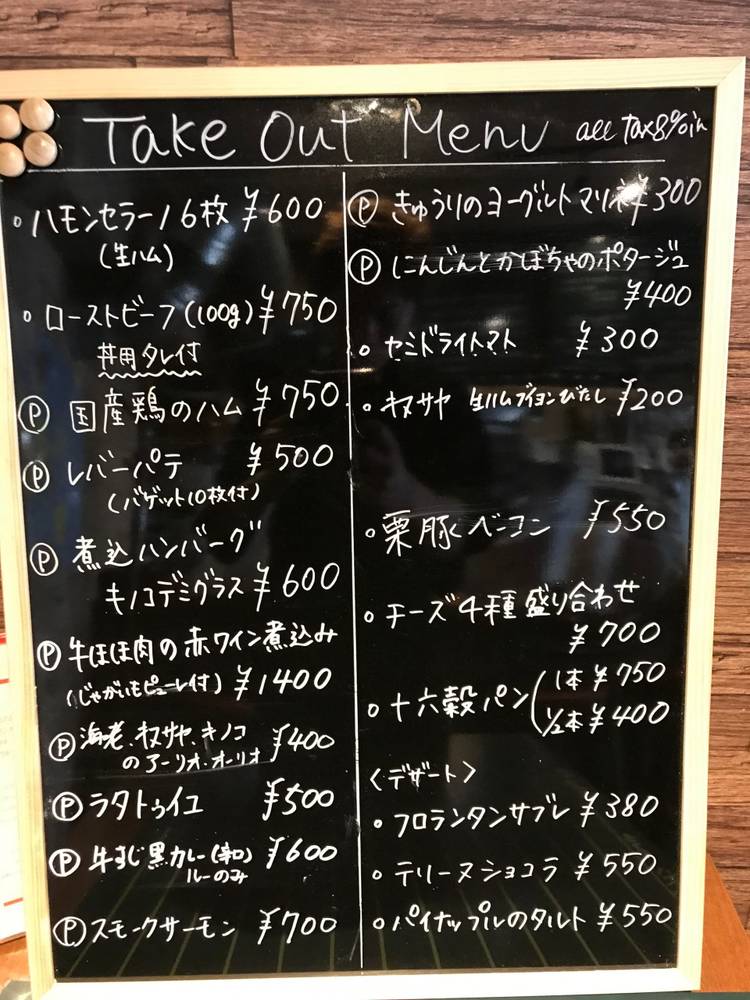 Take Out Menu all tax8%in
。ハモンセラーノ6枚 ¥600
(生ハム)
。ローストビーフ(100g) ¥750
丼用タレ付
Ⓟ 国産鶏のハム ¥750
Ⓟ レバーパテ ¥500
(バゲット10枚付)
Ⓟ 煮込ハンバーグ
キノコデミグラス ¥600
Ⓟ 牛ほほ肉の赤ワイン煮込み
(じゃがいもピューレ付) ¥1400
Ⓟ 海老、オクラ、キノコ
のアーリオ・オーリオ ¥400
Ⓟ ラタトゥイユ ¥500
Ⓟ 牛すじ黒カレー(辛口) ¥600
ルーのみ
Ⓟ スモークサーモン ¥700
Ⓟ きゅうりのヨーグルトマリネ ¥300
Ⓟ にんじんとかぼちゃのポタージュ
¥400
。セミドライトマト ¥300
。生ハムブイヨンびたし ¥200
。栗豚ベーコン ¥550
。チーズ4種盛り合わせ
¥700
。十六穀パン(1本 ¥750
1/2本 ¥400
〈デザート〉
。フロランタンサブレ ¥380
。テリーヌショコラ ¥550
。パイナップルのタルト ¥550